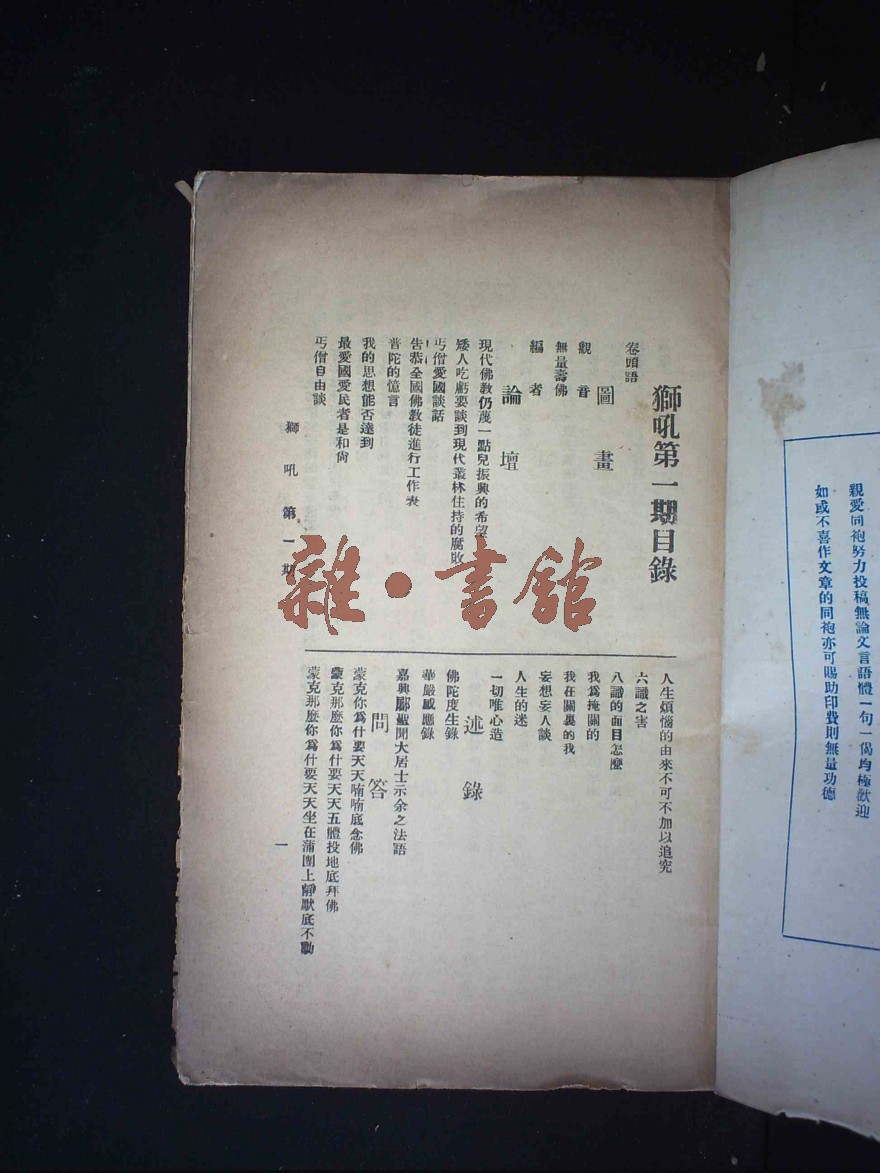 親愛同袍努力投稿無論文言語體一句一偈均極歡迎
如或不喜作文章的同袍亦可賜助印費則無量功德
獅吼第一期目錄
卷頭語
圖畫
觀音
無量壽佛
編者
論壇
現代佛教仍蔑一點兒振興的希望
矮人吃虧要談到現代叢林住持的腐敗
丐僧愛國談話
告恭全國佛教徒進行工作表
普陀的憶言
我的思想能否達到
最愛國愛民者是和尙
丐僧自由談
人生煩惱的由來不可不加以追究
六識之害
八識的面目怎麼
我爲掩關的
我在關裏的我
妄想妄人談
人生的迷
一切唯心造
述錄
佛陀度生錄
華嚴感應錄
嘉興鄺聖聞大居士示余之法語
問答
蒙克你爲什要天天喃喃底念佛
蒙克那麼你爲什要天天五體投地底拜佛
蒙克那麼你爲什要天天坐在蒲團上靜默底不動
獅吼第一期
一
雜·書館